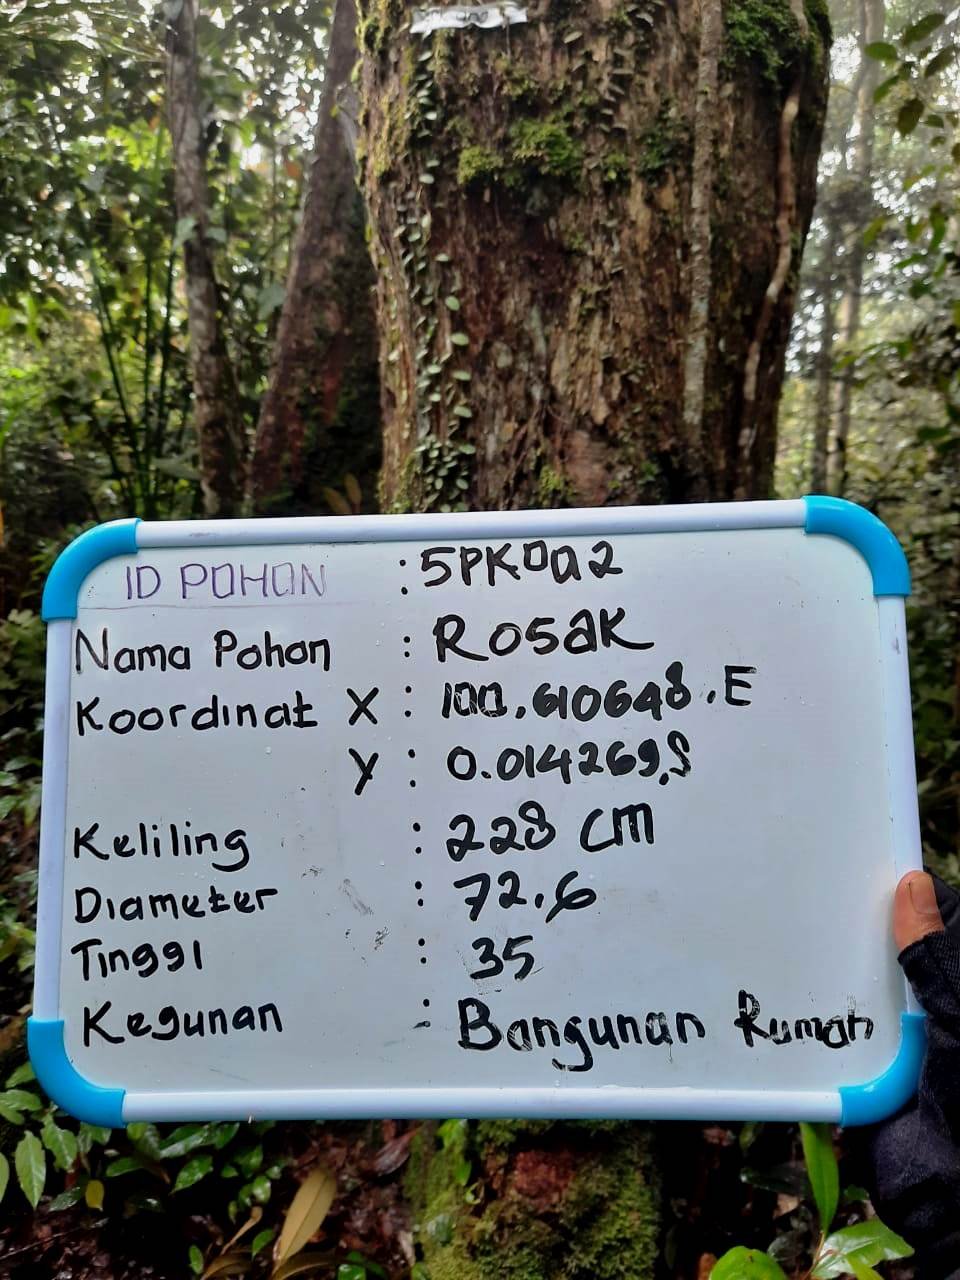 ID POHON : 5PK002
Nama Pohon : Rosak
Koordinat X : 100.610648.E
Y : 0.014269,S
Keliling : 228 cm
Diameter : 72.6
Tinggi : 35
Kegunan : Bangunan Rumah